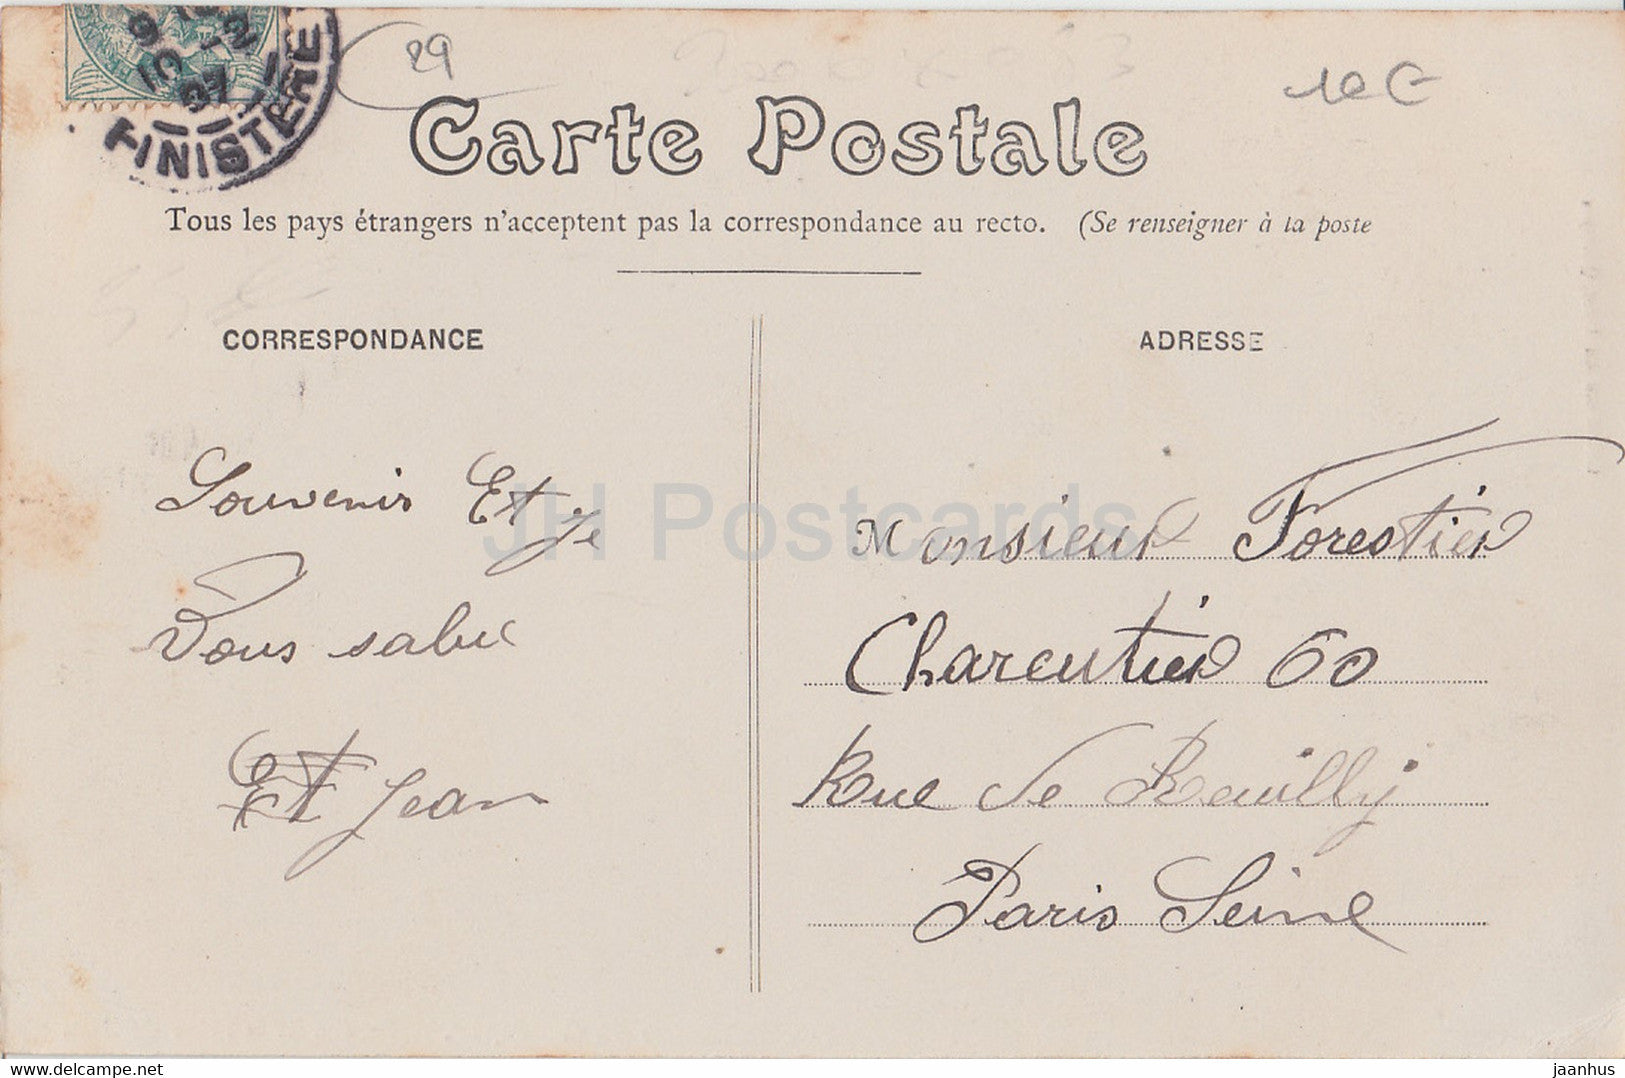 29
10 €
FINISTÈRE
Carte Postale
Tous les pays étrangers n'acceptent pas la correspondance au recto. (Se renseigner à la poste
CORRESPONDANCE
ADRESSE
Souvenir Et Je
Vous salue
Et Jean
Monsieur Forestier
Charcutier 60
Rue de Reuilly
Paris Seine
JH Postcards
jaanhus